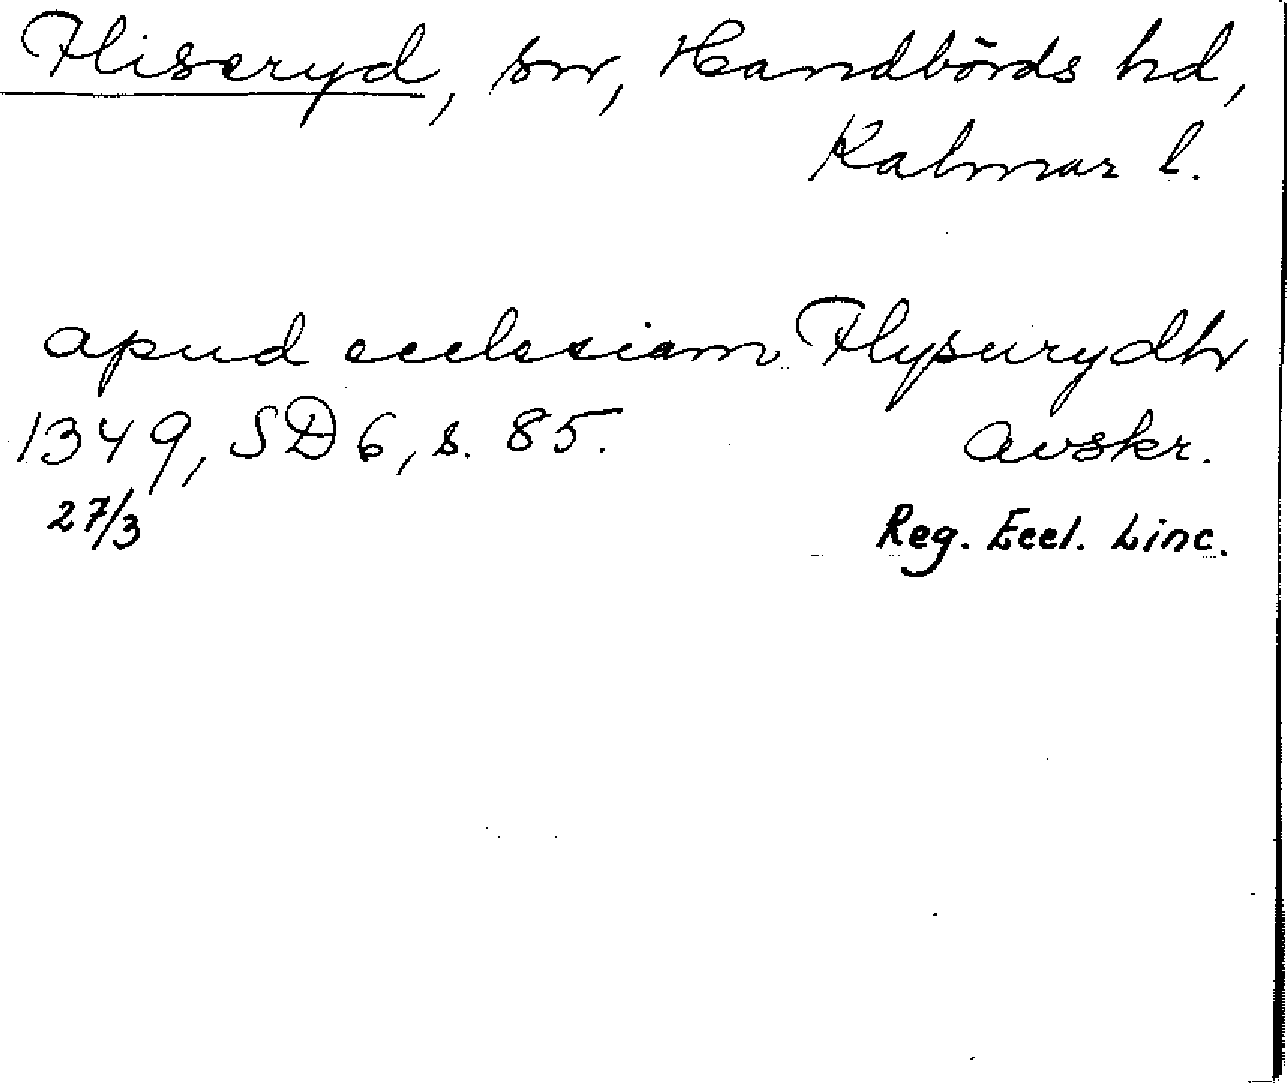 Fliseryd, sn, Handbörds hd,
Kalmar l.
apud ecclesiam Flysurydh
1349, SD 6, s. 85. avskr.
27/3 Reg. Eccl. Linc.